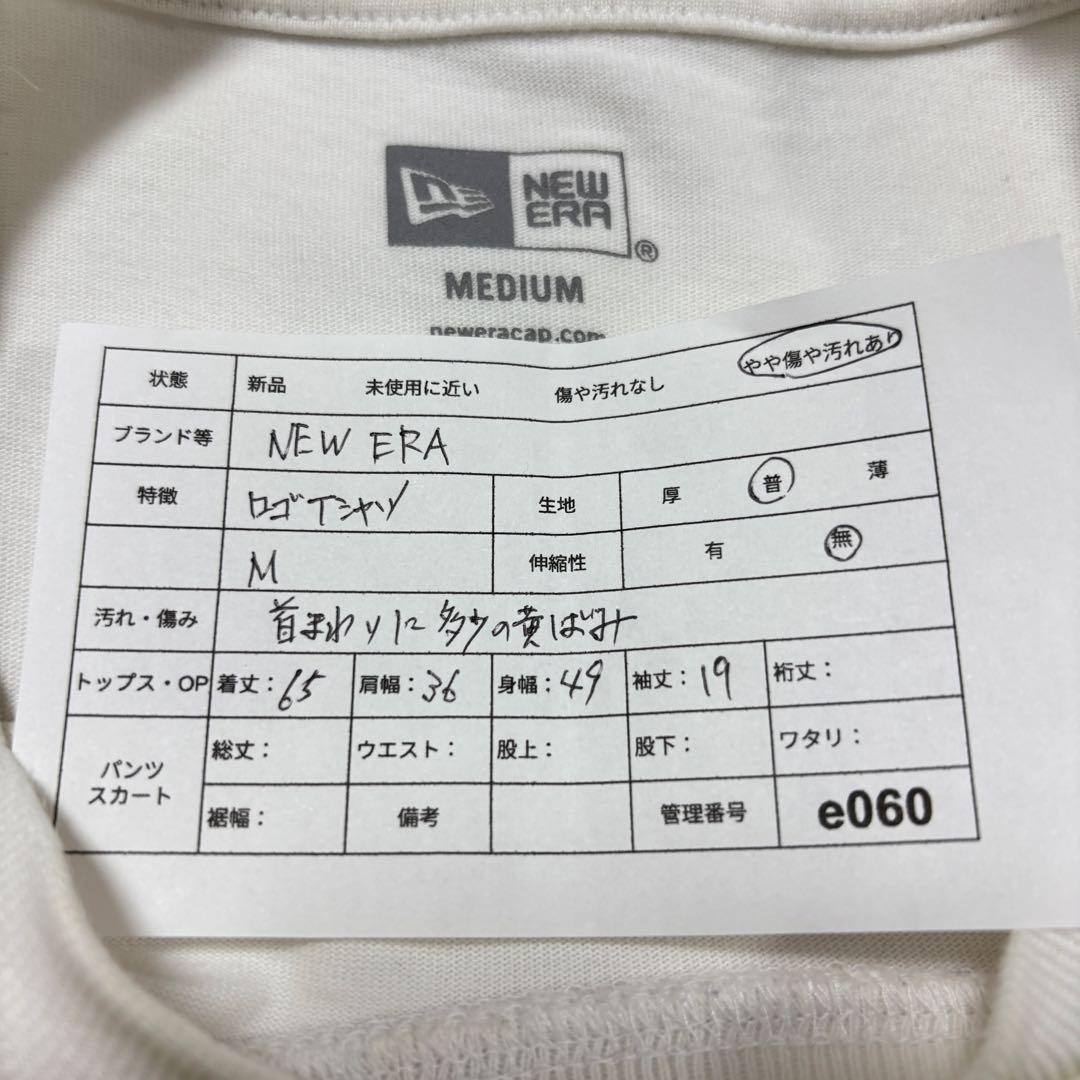 NEW
ERA
®
MEDIUM
neweracap.com
状態 新品 未使用に近い 傷や汚れなし やや傷や汚れあり
ブランド等 NEW ERA
特徴 ロゴTシャツ 生地 厚 普 薄
M 伸縮性 有 無
汚れ・傷み 首まわりに多少の黄ばみ
トップス・OP 着丈:65 肩幅:36 身幅:49 袖丈:19 裄丈:
パンツ
スカート
総丈: ウエスト: 股上: 股下: ワタリ:
裾幅: 備考 管理番号 e060